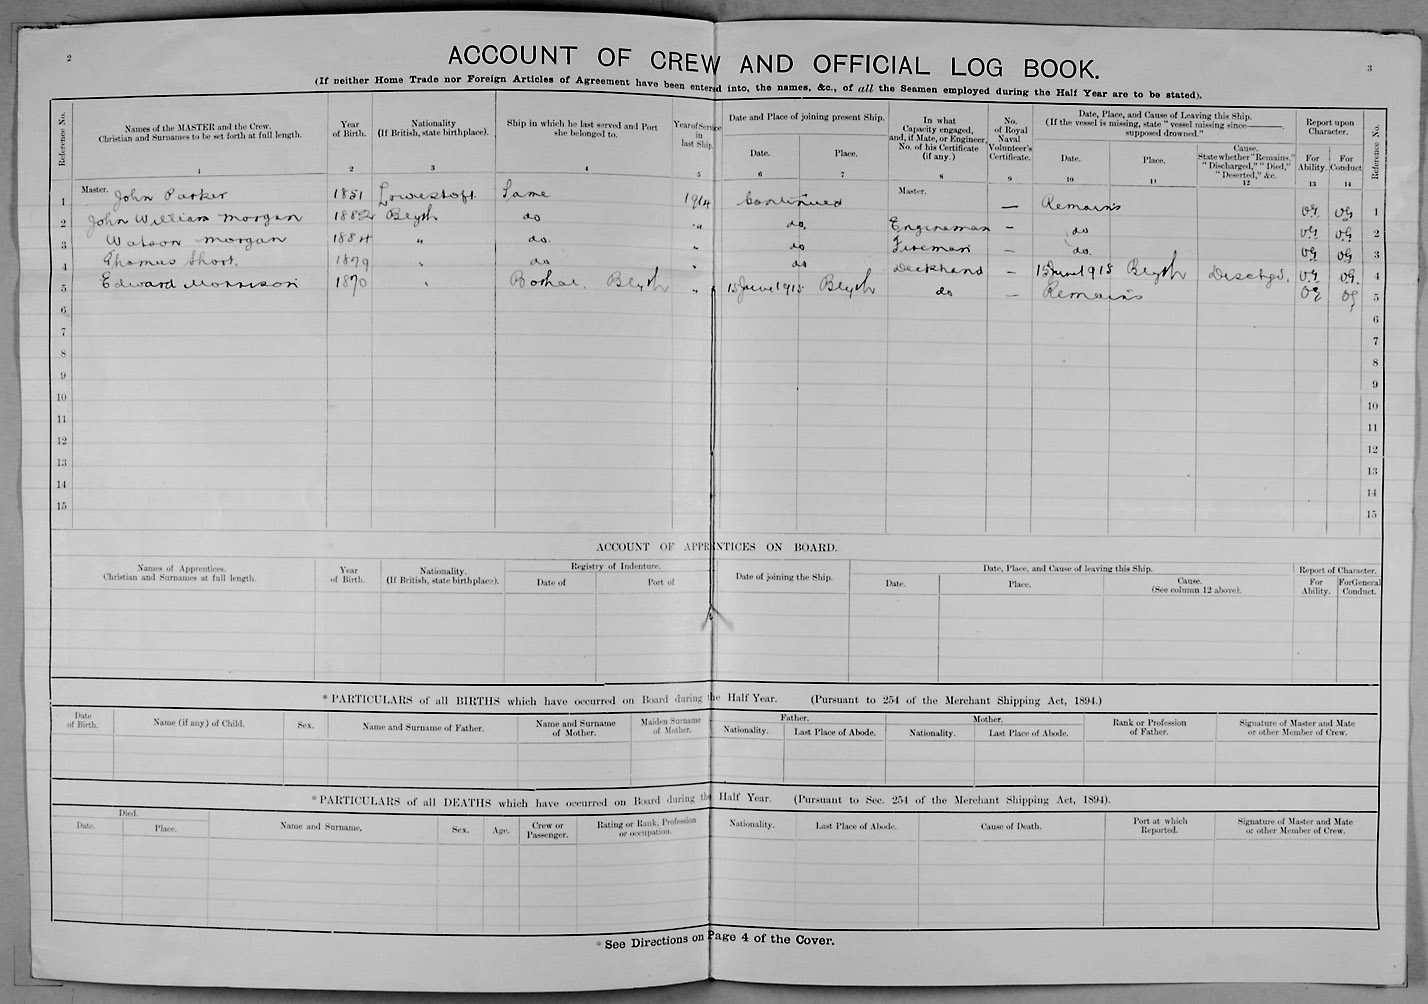 2
3
ACCOUNT OF CREW AND OFFICIAL LOG BOOK.
(If neither Home Trade nor Foreign Articles of Agreement have been entered into, the names, &c., of all the Seamen employed during the Half Year are to be stated).
Reference No.
Names of the MASTER and the Crew.
Christian and Surnames to be set forth at full length.
1
Year
of Birth.
2
Nationality
(If British, state birthplace).
3
Ship in which he last served and Port
she belonged to.
4
Year of Service
in
last Ship.
5
Date and Place of joining present Ship.
Date.
6
Place.
7
In what
Capacity engaged,
and, if Mate, or Engineer,
No. of his Certificate
(if any.)
8
No.
of Royal
Naval
Volunteer's
Certificate.
9
Date, Place, and Cause of Leaving this Ship.
(If the vessel is missing, state "vessel missing since———,
supposed drowned."
Date.
10
Place.
11
Cause.
State whether "Remains,"
"Discharged," "Died,"
"Deserted," &c.
12
Report upon
Character.
For
Ability.
13
For
Conduct
14
Reference No.
1 Master. John Parker 1851 Lowestoft Same 1914 Continued Master. — Remains VG VG 1
2 John William Morgan 1882 Blyth do " do Engineman — do VG VG 2
3 Watson Morgan 1884 " do. " do Fireman — do. VG VG 3
4 Thomas Short. 1879 " do " do Deckhand — 15 June 1915 Blyth Dischgd. VG VG. 4
5 Edward Morrison 1870 " Bothal. Blyth " 15 June 1915 Blyth do — Remains VG VG 5
6 6
7 7
8 8
9 9
10 10
11 11
12 12
13 13
14 14
15 15
ACCOUNT OF APPRENTICES ON BOARD.
Names of Apprentices.
Christian and Surnames at full length.
Year
of Birth.
Nationality.
(If British, state birthplace).
Registry of Indenture.
Date of
Port of
Date of joining the Ship.
Date, Place, and Cause of leaving this Ship.
Date.
Place.
Cause.
(See column 12 above).
Report of Character.
For
Ability.
For General
Conduct.
*PARTICULARS of all BIRTHS which have occurred on Board during the Half Year. (Pursuant to 254 of the Merchant Shipping Act, 1894.)
Date
of Birth.
Name (if any) of Child.
Sex.
Name and Surname of Father.
Name and Surname
of Mother.
Maiden Surname
of Mother.
Father.
Nationality.
Last Place of Abode.
Mother.
Nationality.
Last Place of Abode.
Rank or Profession
of Father.
Signature of Master and Mate
or other Member of Crew.
*PARTICULARS of all DEATHS which have occurred on Board during the Half Year. (Pursuant to Sec. 254 of the Merchant Shipping Act, 1894).
Died.
Date.
Place.
Name and Surname.
Sex.
Age.
Crew or
Passenger.
Rating or Rank, Profession
or occupation.
Nationality.
Last Place of Abode.
Cause of Death.
Port at which
Reported.
Signature of Master and Mate
or other Member of Crew.
*See Directions on Page 4 of the Cover.